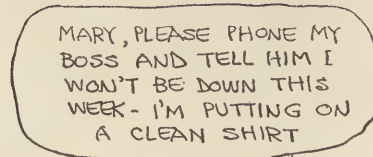 MARY, PLEASE PHONE MY
BOSS AND TELL HIM I
WON'T BE DOWN THIS
WEEK - I'M PUTTING ON
A CLEAN SHIRT